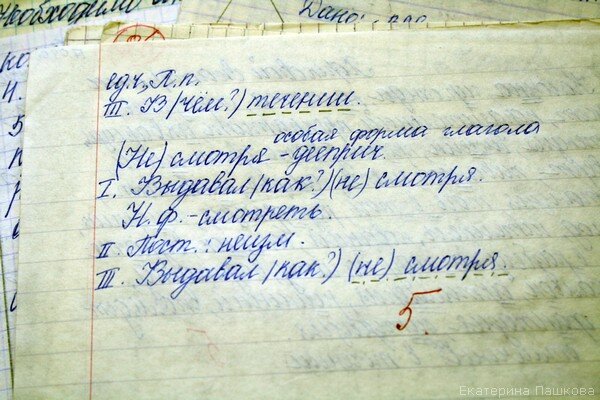 Необходимо
Дано:
ед.ч., П.п.
III. В (чём?) течении.
особая форма глагола
(Не) смотря - дееприч.
I. Выдавал (как?) (не) смотря.
Н.ф. - смотреть.
II. Пост.: неизм.
III. Выдавал (как?) (не) смотря.
5.
Екатерина Пашкова